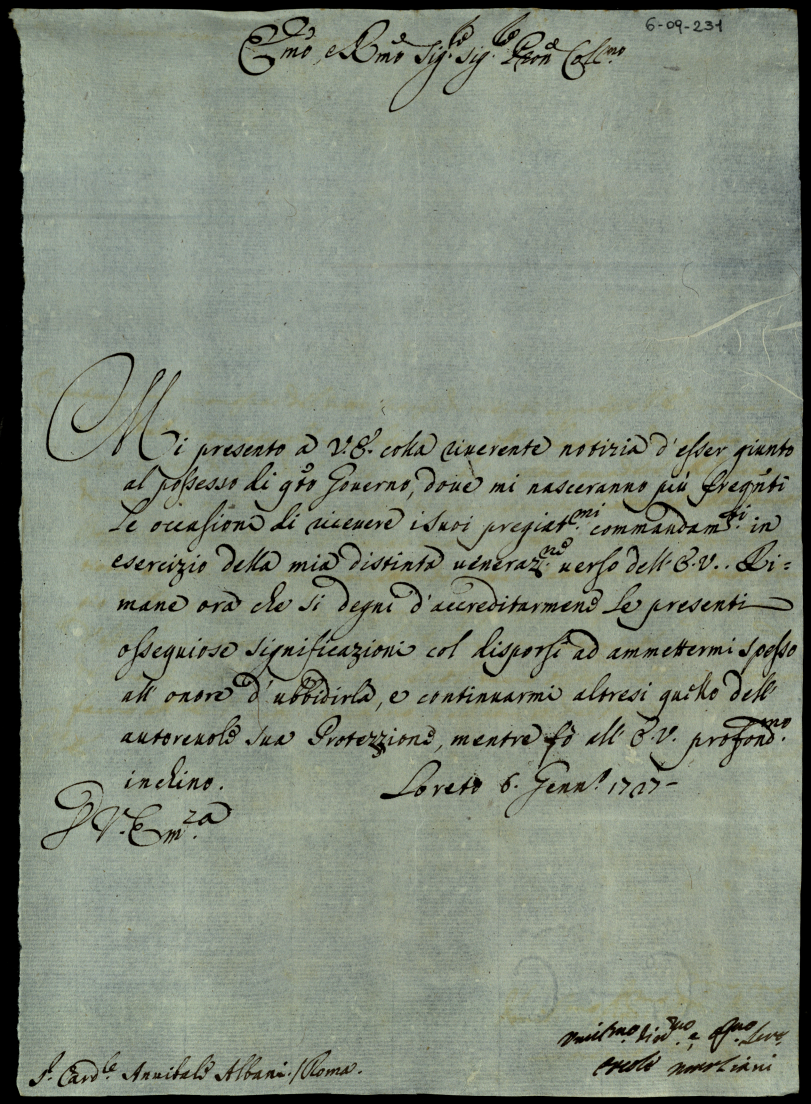 6-09-231
Emo, e Rmo Sig.re Sig.re Pron Col.mo
Mi presento a V.E. colla riverente notizia d'esser giunto
al possesso di qsto Governo, dove mi nasceranno più freqnti
le occasioni di ricevere i suoi pregiat.mi commandam.ti in
esercizio della mia distinta veneraz.ne verso dell'E.V.. Ri=
mane ora che si degni d'accreditarmene le presenti
ossequiose significazioni col disporsi ad ammettermi spesso
all'onore d'ubbidirla, e continuarmi altresi quello dell'
autorevole sua Protezzione, mentre fò all'E.V. profond.mo
inchino. Loreto 6. Genn.o 1727
D V. Em.za
S.r Card.le Annibale Albani./Roma.
Umil.mo Div.mo e Obl.mo Serv.
Ercole